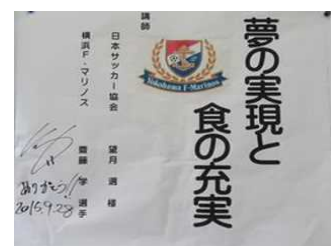 夢の実現と
食の充実
講師
Yokohama F·Marinos
日本サッカー協会 望月 選 様
横浜F・マリノス 齋藤 学 選手
ありがとう!!
2015.9.28